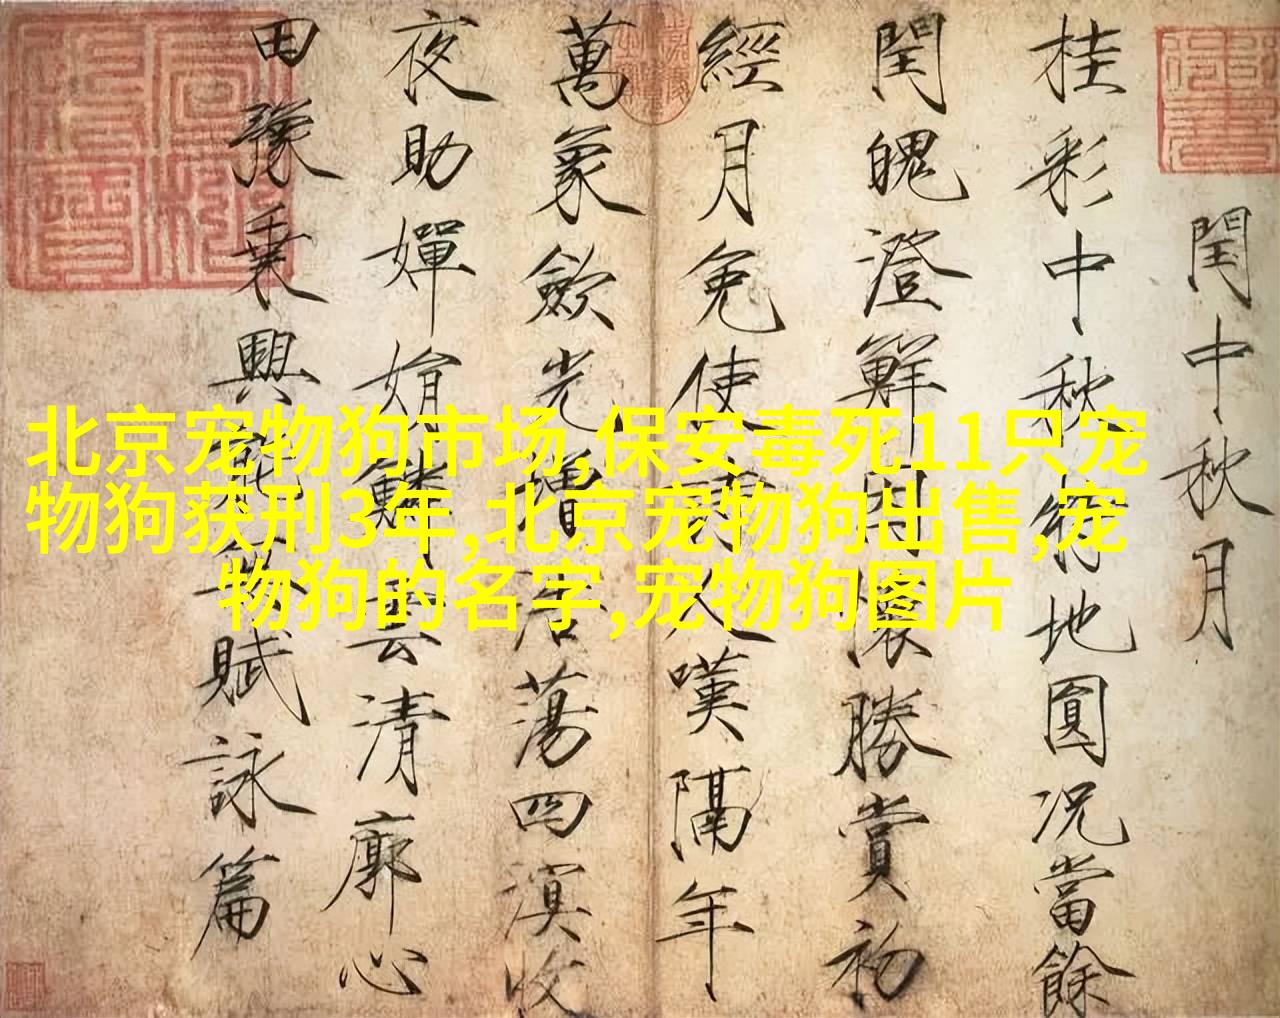 閏中秋月
桂彩中秋特地圓況當餘
閏魄澄鮮因懷勝賞初
經月免使詩人嘆隔年
萬象歛光增浩蕩四溟收
夜助嬋娟鱗雲清廓心
田豫乗興能無賦詠篇
北京宠物狗市场,保安毒死11只宠
物狗获刑3年,北京宠物狗出售,宠
物狗的名字,宠物狗图片